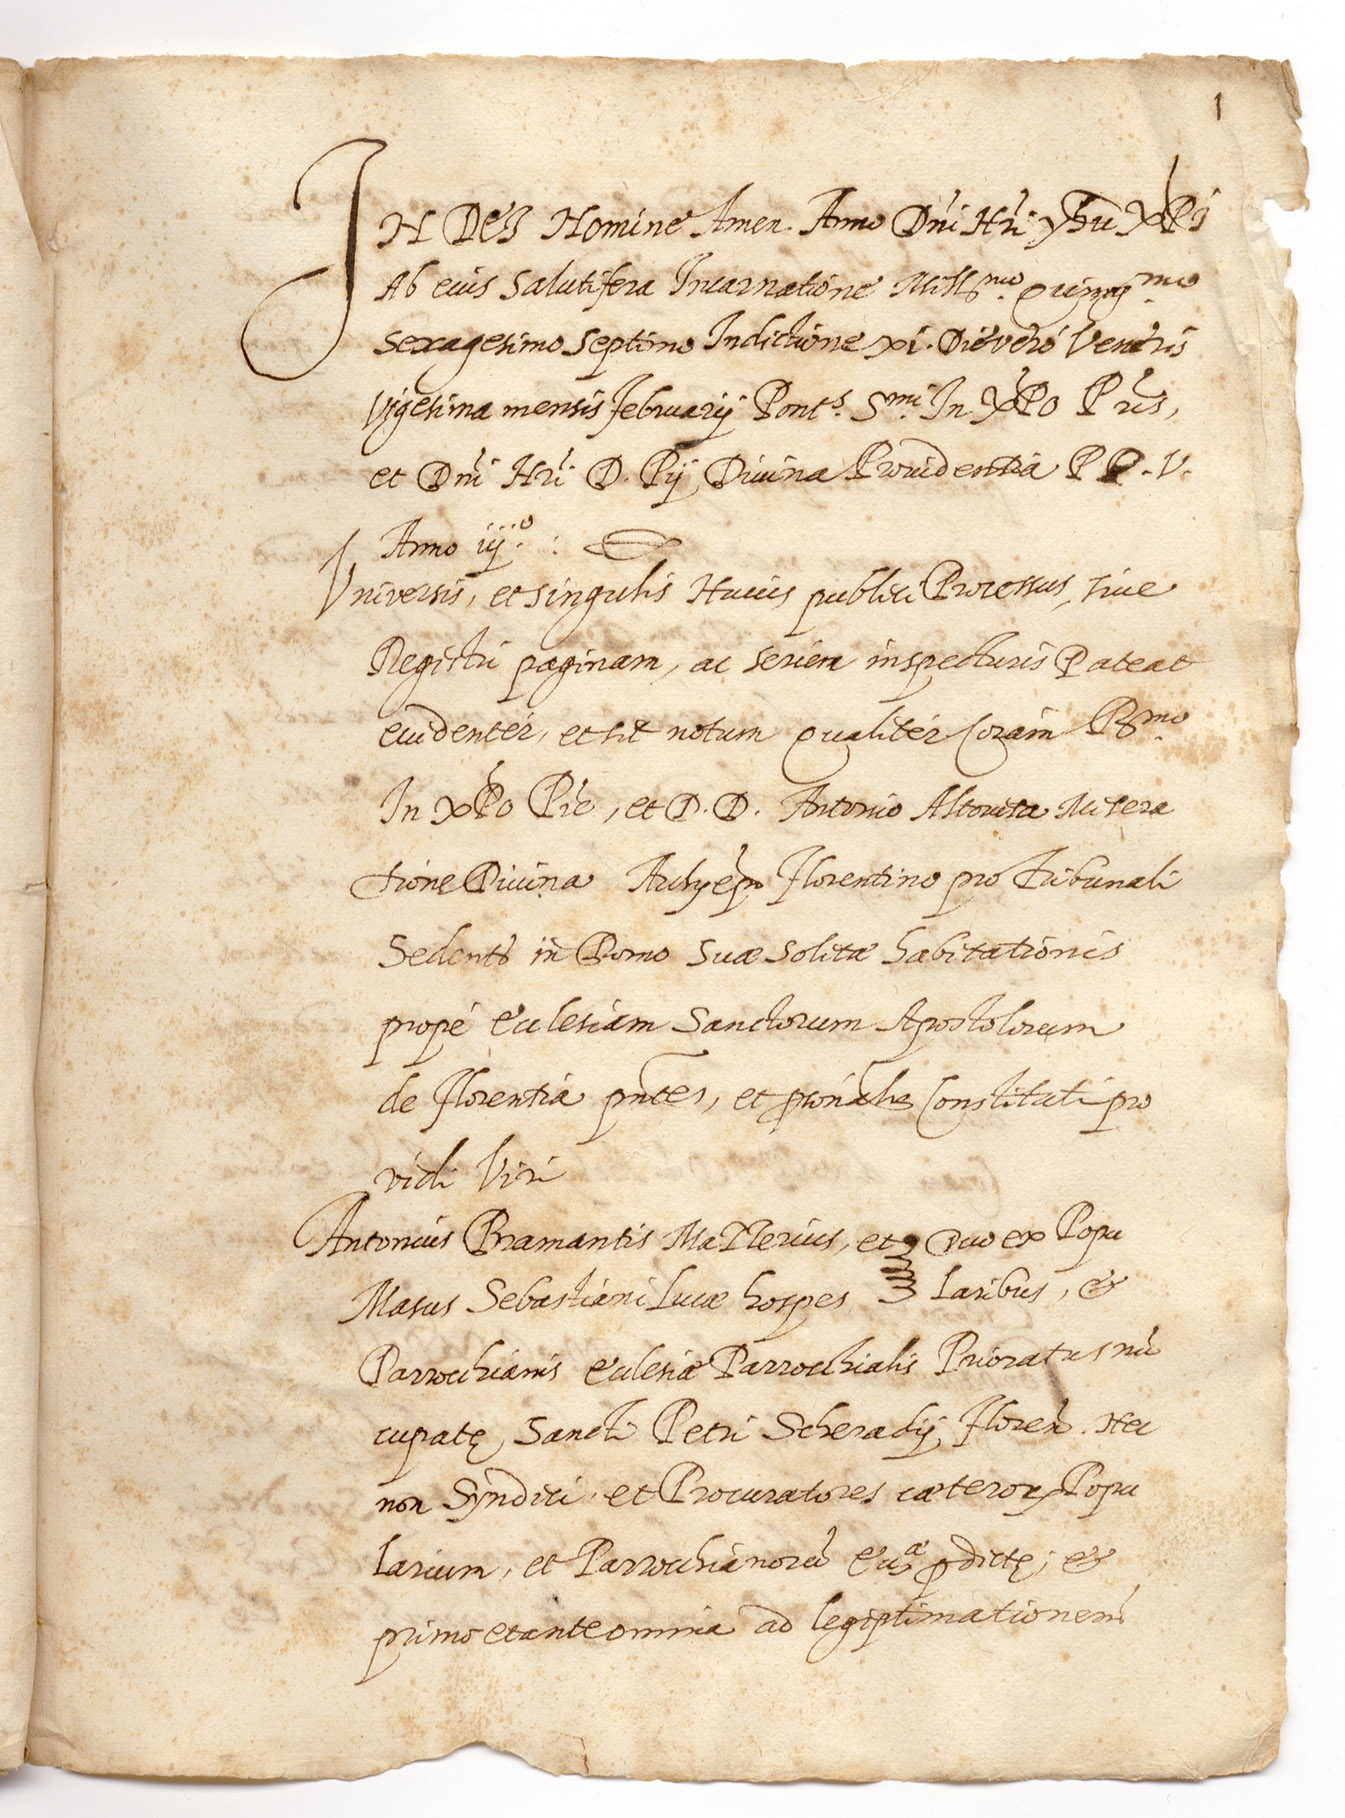 1
IN DEI Nomine Amen. Anno Dñi Nri yhu XPi
Ab eius salutifera Incarnatione Mill.mo Quing.mo
sexagesimo septimo Indictione xi. Die vero Veneris
Vigesima mensis februarij Pont.s S.mi In XPo Pris,
et Dni Nri D. Pij Divina Providentia PP. V.
Anno iij.o :
Universis, et singulis Huius publici Processus, sive
Registri paginam, ac seriem inspecturis Pateat
evidenter, et sit notum qualiter Coram R.mo
In XPo Pre, et D. D. Antonio Altovita Misera
tione Divina Archyepo Florentino pro tribunali
sedente in Domo suæ solitæ habitationis
propé Ecclesiam Sanctorum Apostolorum
de Florentia pntes, et psonalr Constituti pro
vidi Viri
Antonius Bramantis Matterius, et Duo ex Popu
Masus Sebastiani Lucæ hospes laribus, &
Parrochianis Ecclesiæ Parrochialis Prioratus nũ
cupatę, Sancti Petri Scheradij, Floren. Nec
non Syndici et Procuratores cæterorꝝ Popu
larium, et Parrochianorũ Ecc.æ pdictę; &
primo et ante omnia ad legiptimationem